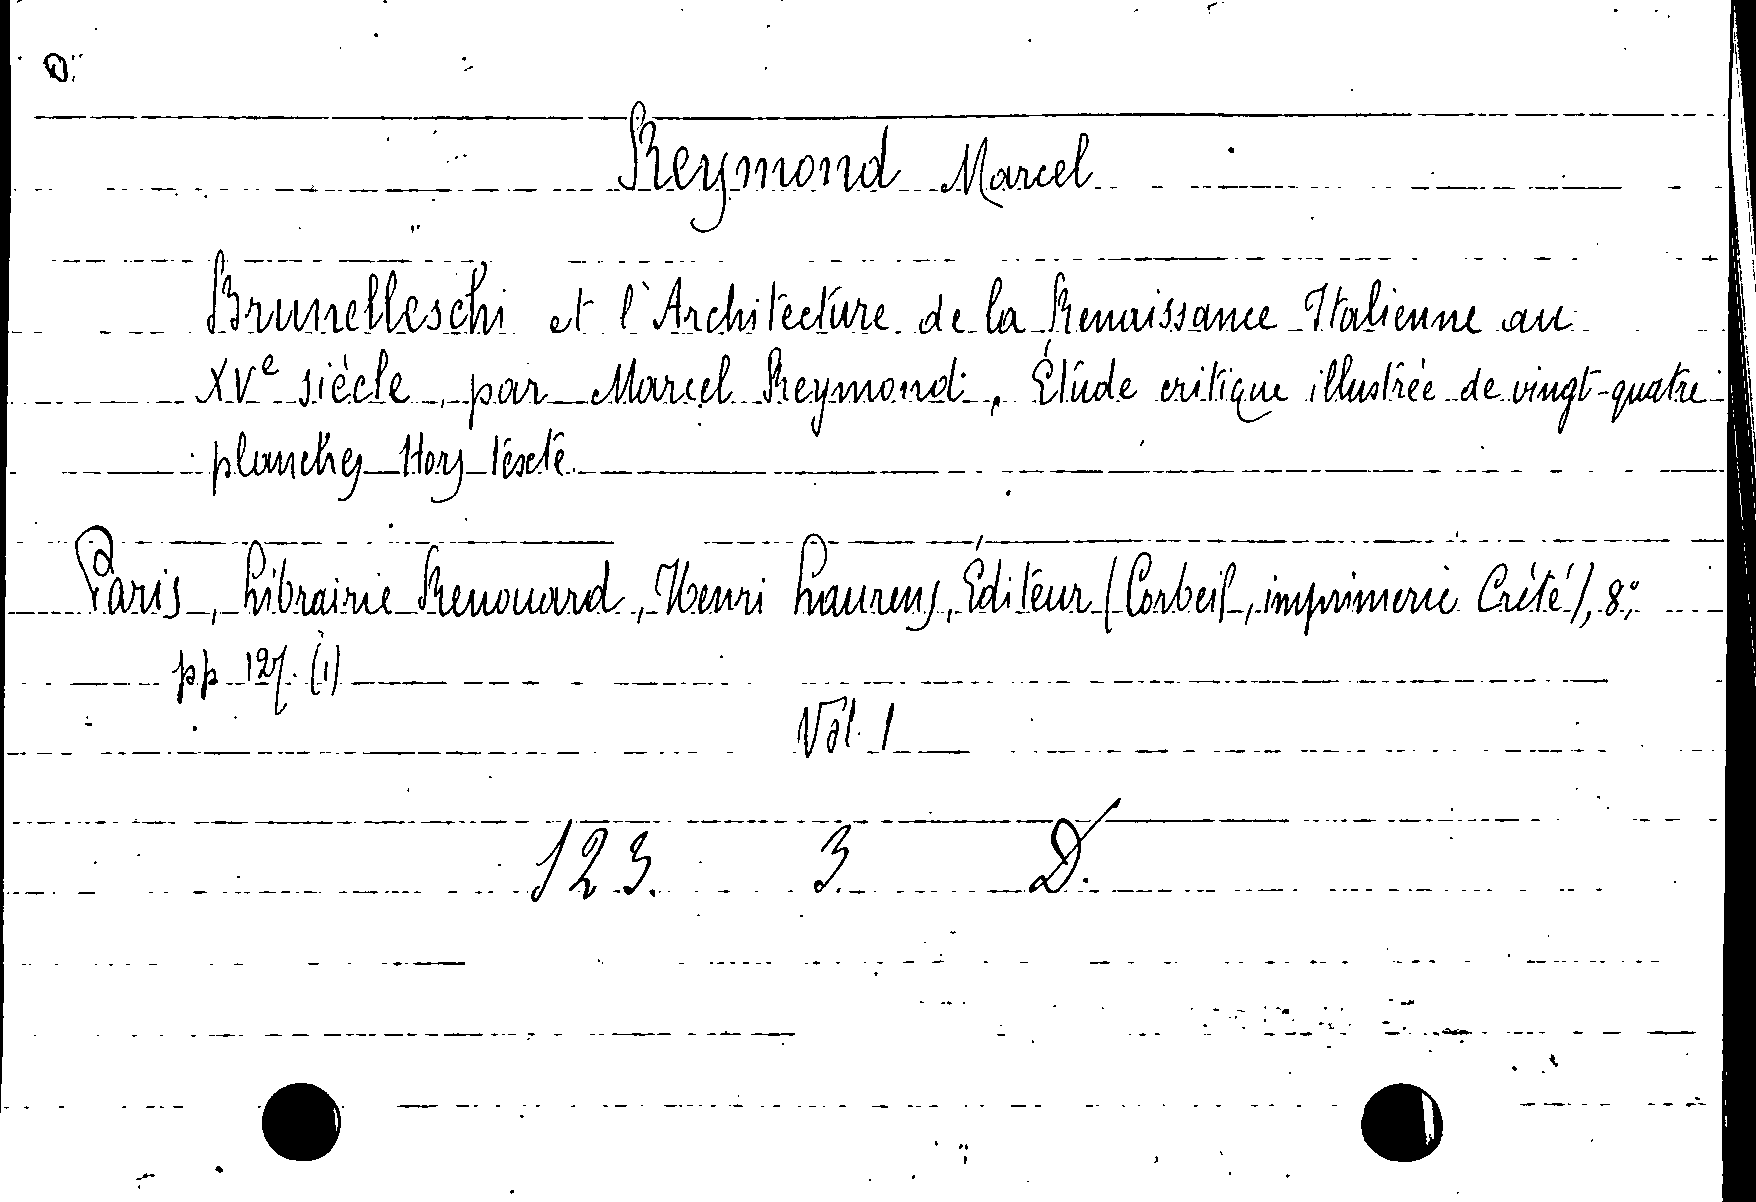 Reymond Marcel
Brunelleschi et l'Architecture de la Renaissance Italienne au
XVe siècle, par Marcel Reymond. Étude critique illustrée de vingt-quatre
planches Hors texte
Paris, Librairie Renouard, Henri Laurens, Éditeur (Corbeil, imprimerie Crété), 8°,
pp 127. (1)
Vol. 1
123. 3. D.